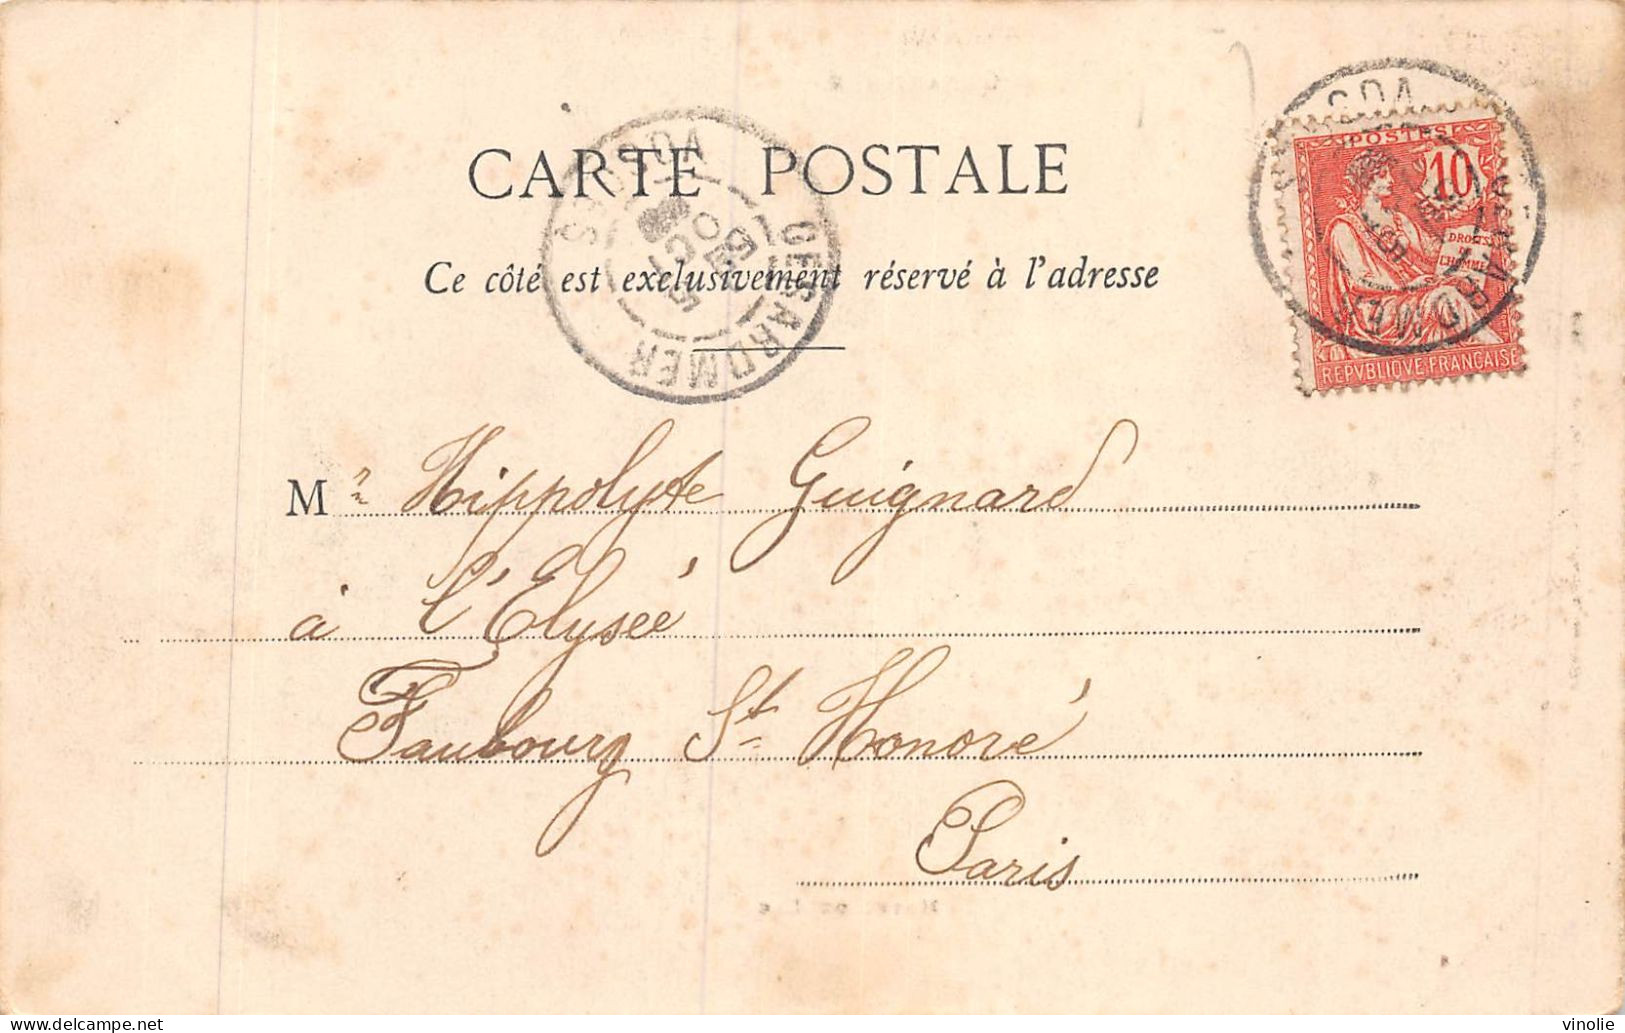 CARTE POSTALE
Ce côté est exclusivement réservé à l'adresse
GERARDMER
POSTES
10
DROITS
DE
L'HOMME
REPVBLIQVE FRANÇAISE
Mr Hippolyte Guignard
à l'Elysée
Faubourg St Honoré
Paris
vinolie